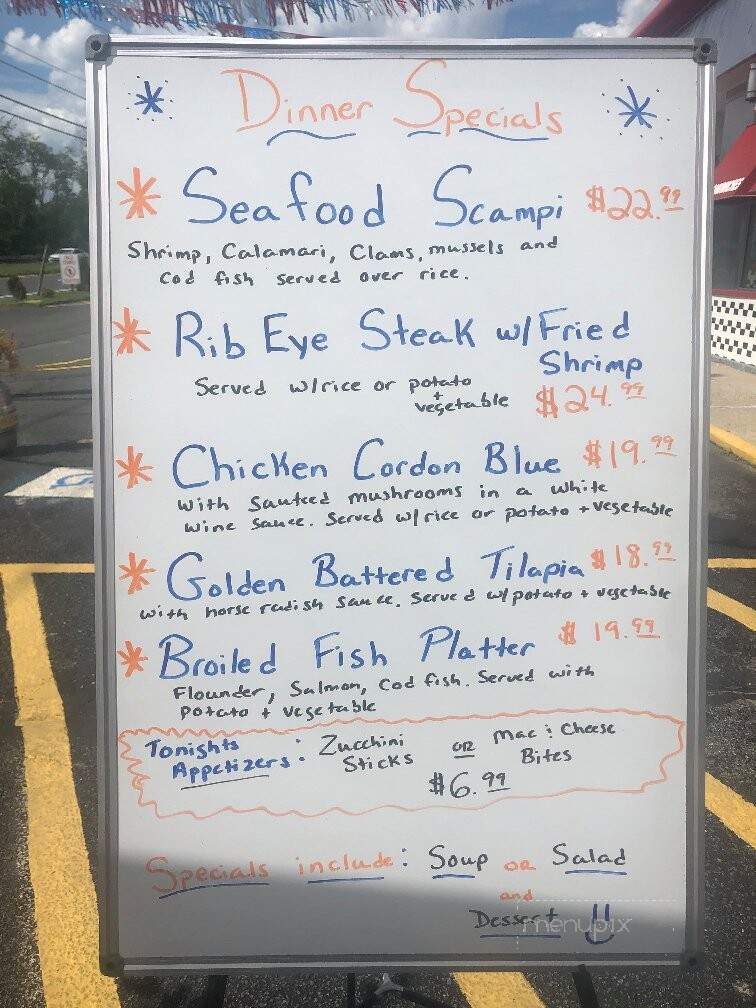 Dinner Specials
Seafood Scampi $22.99
Shrimp, Calamari, Clams, mussels and
Cod fish served over rice.
Rib Eye Steak w/Fried
Shrimp
Served w/rice or potato
+
vegetable $24.99
Chicken Cordon Blue $19.99
with Sauteed mushrooms in a white
wine sauce. Served w/rice or potato + vegetable
Golden Battered Tilapia $18.99
with horse radish sauce. Served w/potato + vegetable
Broiled Fish Platter $19.99
Flounder, Salmon, Cod fish. Served with
potato + vegetable
Tonights Zucchini or Mac & Cheese
Appetizers: Sticks Bites
$6.99
Specials include: Soup or Salad
and
Dessert
menupix